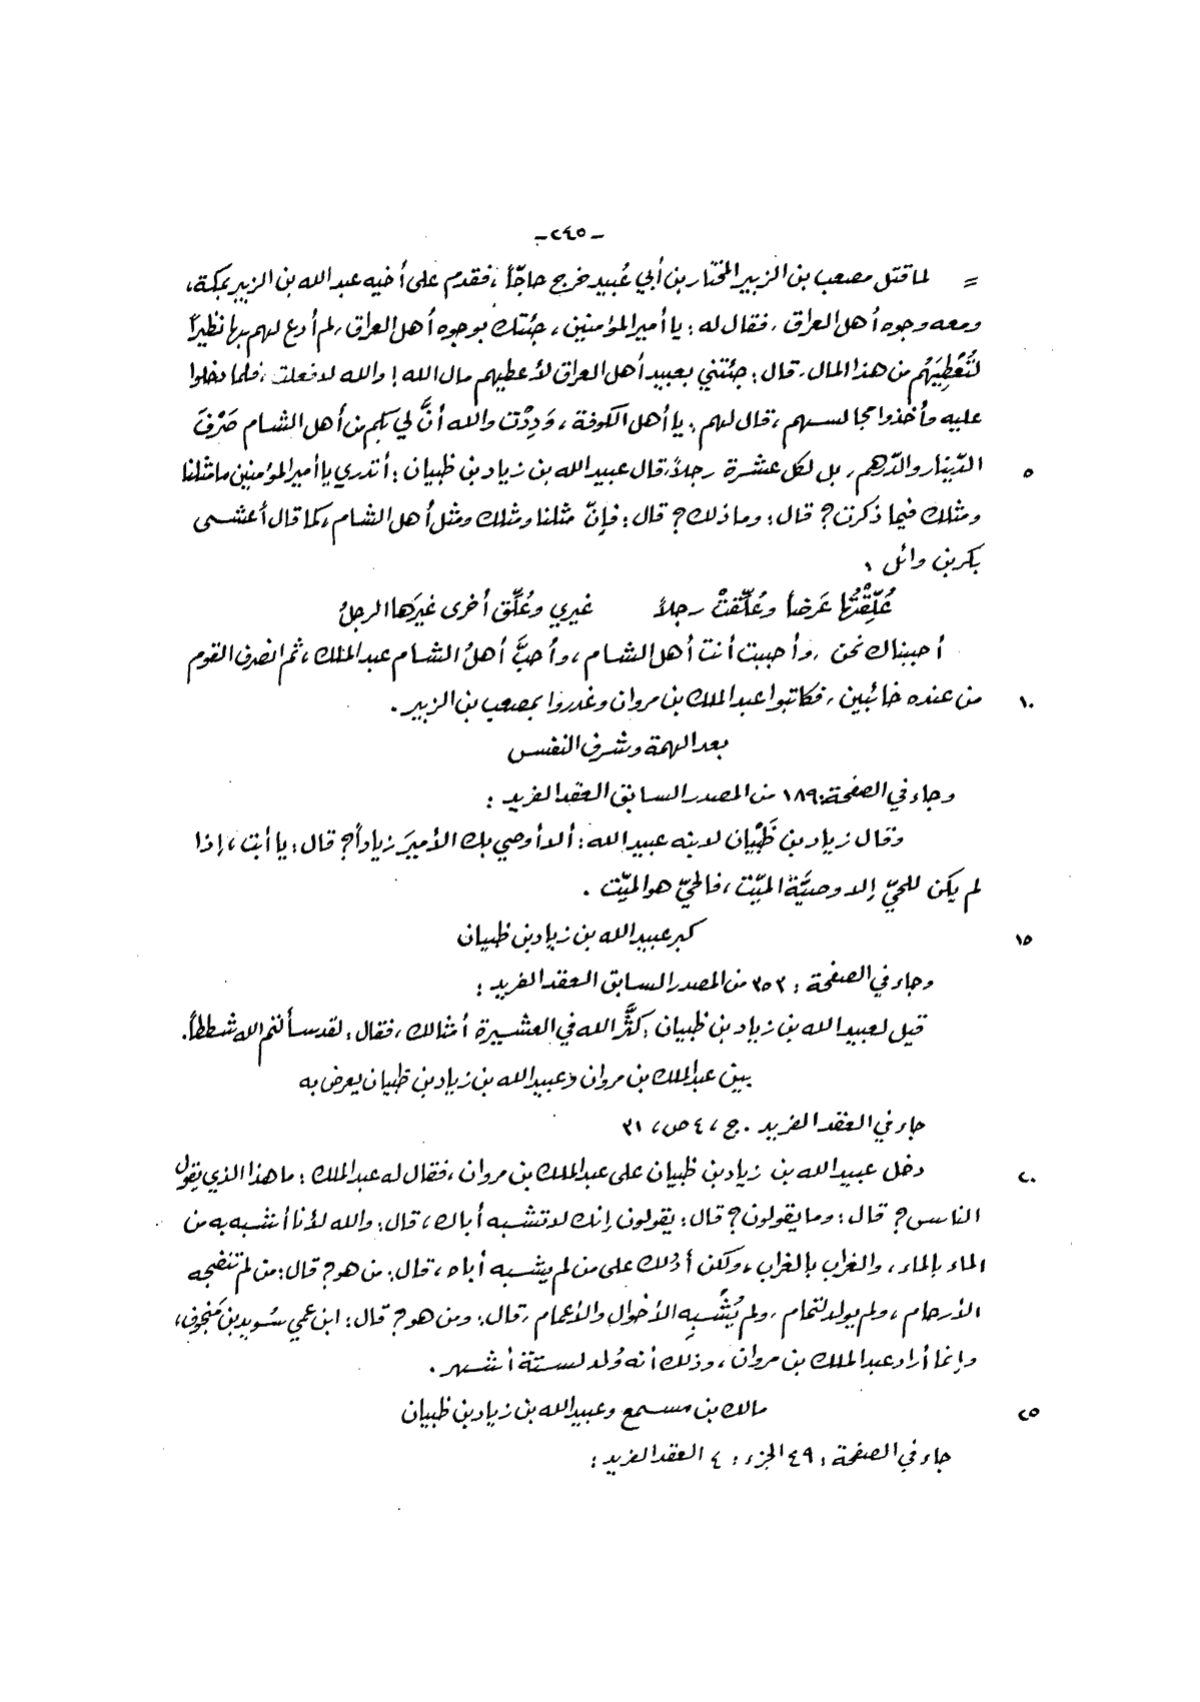 -٢٤٥-
= لما قتل مصعب بن الزبير المختار بن أبي عُبيد خرج حاجّاً، فقدم على أخيه عبد الله بن الزبير بمكة،
ومعه وجوه أهل العراق، فقال له: يا أمير المؤمنين، جئتك بوجوه أهل العراق، لم أدع لهم بها نظيراً
لتُعْطِيَهُم من هذا المال، قال: جئتني بعبيد أهل العراق لأعطيهم مال الله! والله لا فعلت، فلما دخلوا
عليه وأخذوا مجالسهم، قال لهم: يا أهل الكوفة، وَدِدْت والله أنَّ لي بكم من أهل الشام صَرْفَ
الدّينار والدّرهم، بل لكل عشرة رجلاً، قال عبيد الله بن زياد بن ظبيان: أتدري يا أمير المؤمنين ما مثلنا ٥
ومثلك فيما ذكرت؟ قال: وما ذلك؟ قال: فإنّ مثلنا ومثلك ومثل أهل الشام، كما قال أعشى
بكر بن وائل:
عُلِّقْتُها عَرَضاً وعُلِّقتْ رجلاً غيري وعُلِّق أخرى غيرَها الرجلُ
أحببناك نحن، وأحببت أنت أهل الشام، وأحبَّ أهلُ الشام عبد الملك، ثم انصرف القوم
من عنده خائبين، فكاتبوا عبد الملك بن مروان وغدروا بمصعب بن الزبير. ١٠
بعد الهمة وشرف النفس
وجاء في الصفحة: ١٨٩ من المصدر السابق العقد الفريد:
وقال زياد بن ظَبْيان لابنه عبيد الله: ألا أوصي بك الأميرَ زياداً؟ قال: يا أبت، إذا
لم يكن للحيّ إلا وصيَّة الميّت، فالحيّ هو الميّت.
كبر عبيد الله بن زياد بن ظبيان ١٥
وجاء في الصفحة: ٣٥٣ من المصدر السابق العقد الفريد:
قيل لعبيد الله بن زياد بن ظبيان: كثَّر الله في العشيرة أمثالك، فقال: لقد سألتم الله شططاً.
بين عبد الملك بن مروان وعبيد الله بن زياد بن ظبيان يعرض به
جاء في العقد الفريد. ج، ٤ ص، ٣١
دخل عبيد الله بن زياد بن ظبيان على عبد الملك بن مروان، فقال له عبد الملك: ما هذا الذي يقول ٢٠
الناس؟ قال: وما يقولون؟ قال: يقولون إنك لا تشبه أباك، قال: والله لأنا أشبه به من
الماء بالماء، والغراب بالغراب، ولكن أدلك على من لم يشبه أباه، قال: من هو؟ قال: من لم تنضجه
الأرحام، ولم يولد لتمام، ولم يُشْبِه الأخوال والأعمام، قال: ومن هو؟ قال: ابن عمي سُويد بن مَنجوف،
وإنما أراد عبد الملك بن مروان، وذلك أنه وُلد لستة أشهر.
مالك بن مسمع وعبيد الله بن زياد بن ظبيان ٢٥
جاء في الصفحة: ٤٩ الجزء: ٤ العقد الفريد: